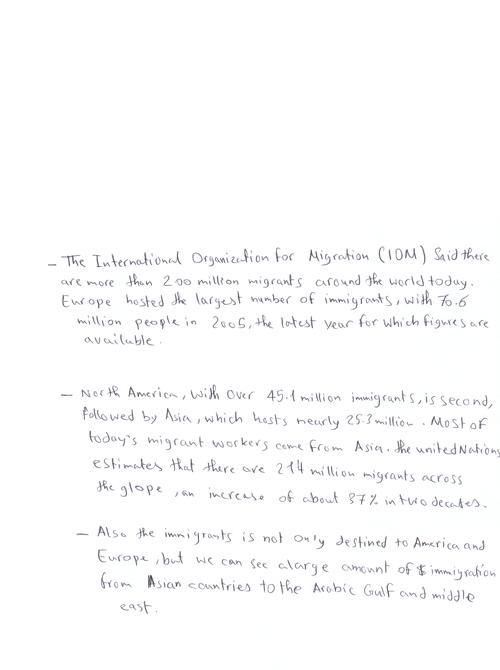 - The International Organization for Migration (IOM) Said there
are more than 200 million migrants around the world today.
Europe hosted the largest number of immigrants, with 70.6
million people in 2005, the latest year for which figures are
available.
- North America, with over 45.1 million immigrants, is second,
followed by Asia, which hosts nearly 25.3 million. Most of
today's migrant workers come from Asia. the united Nations
estimates that there are 214 million migrants across
the glope, an increase of about 37% in two decates.
- Also the immigrants is not only destined to America and
Europe, but we can see alarge amount of immigration
from Asian countries to the Arabic Gulf and middle
east.